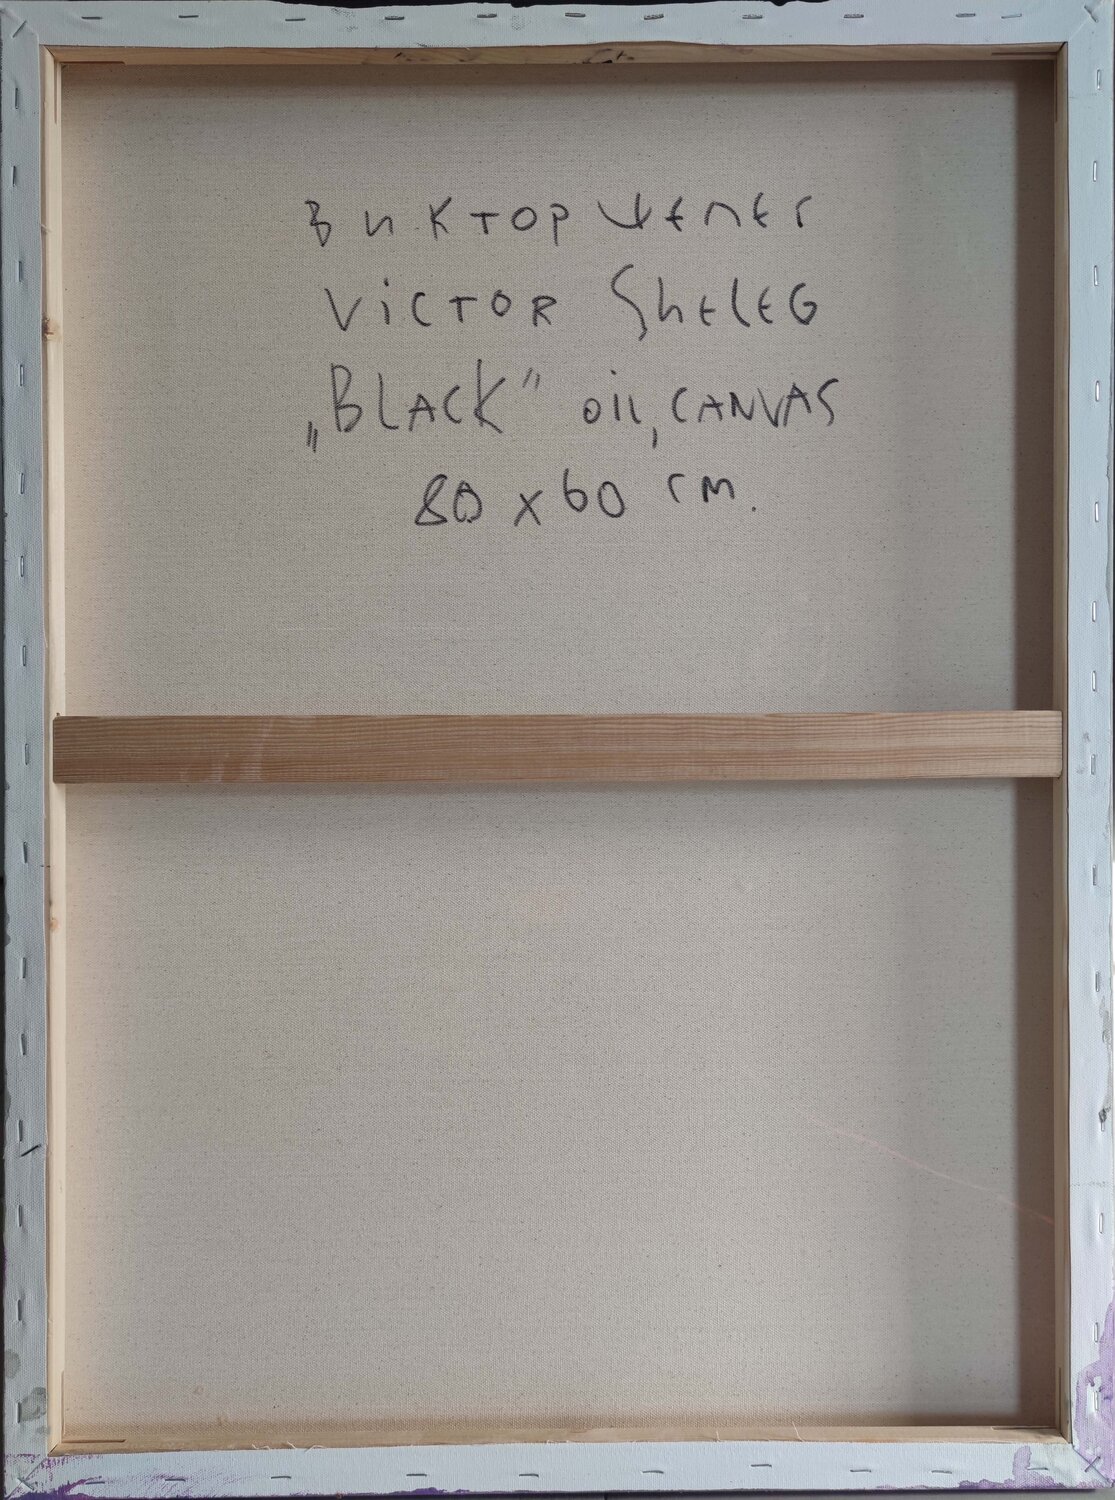 Виктор Шелег
VICTOR SHELEG
„BLACK” OIL, CANVAS
80 x 60 cm.